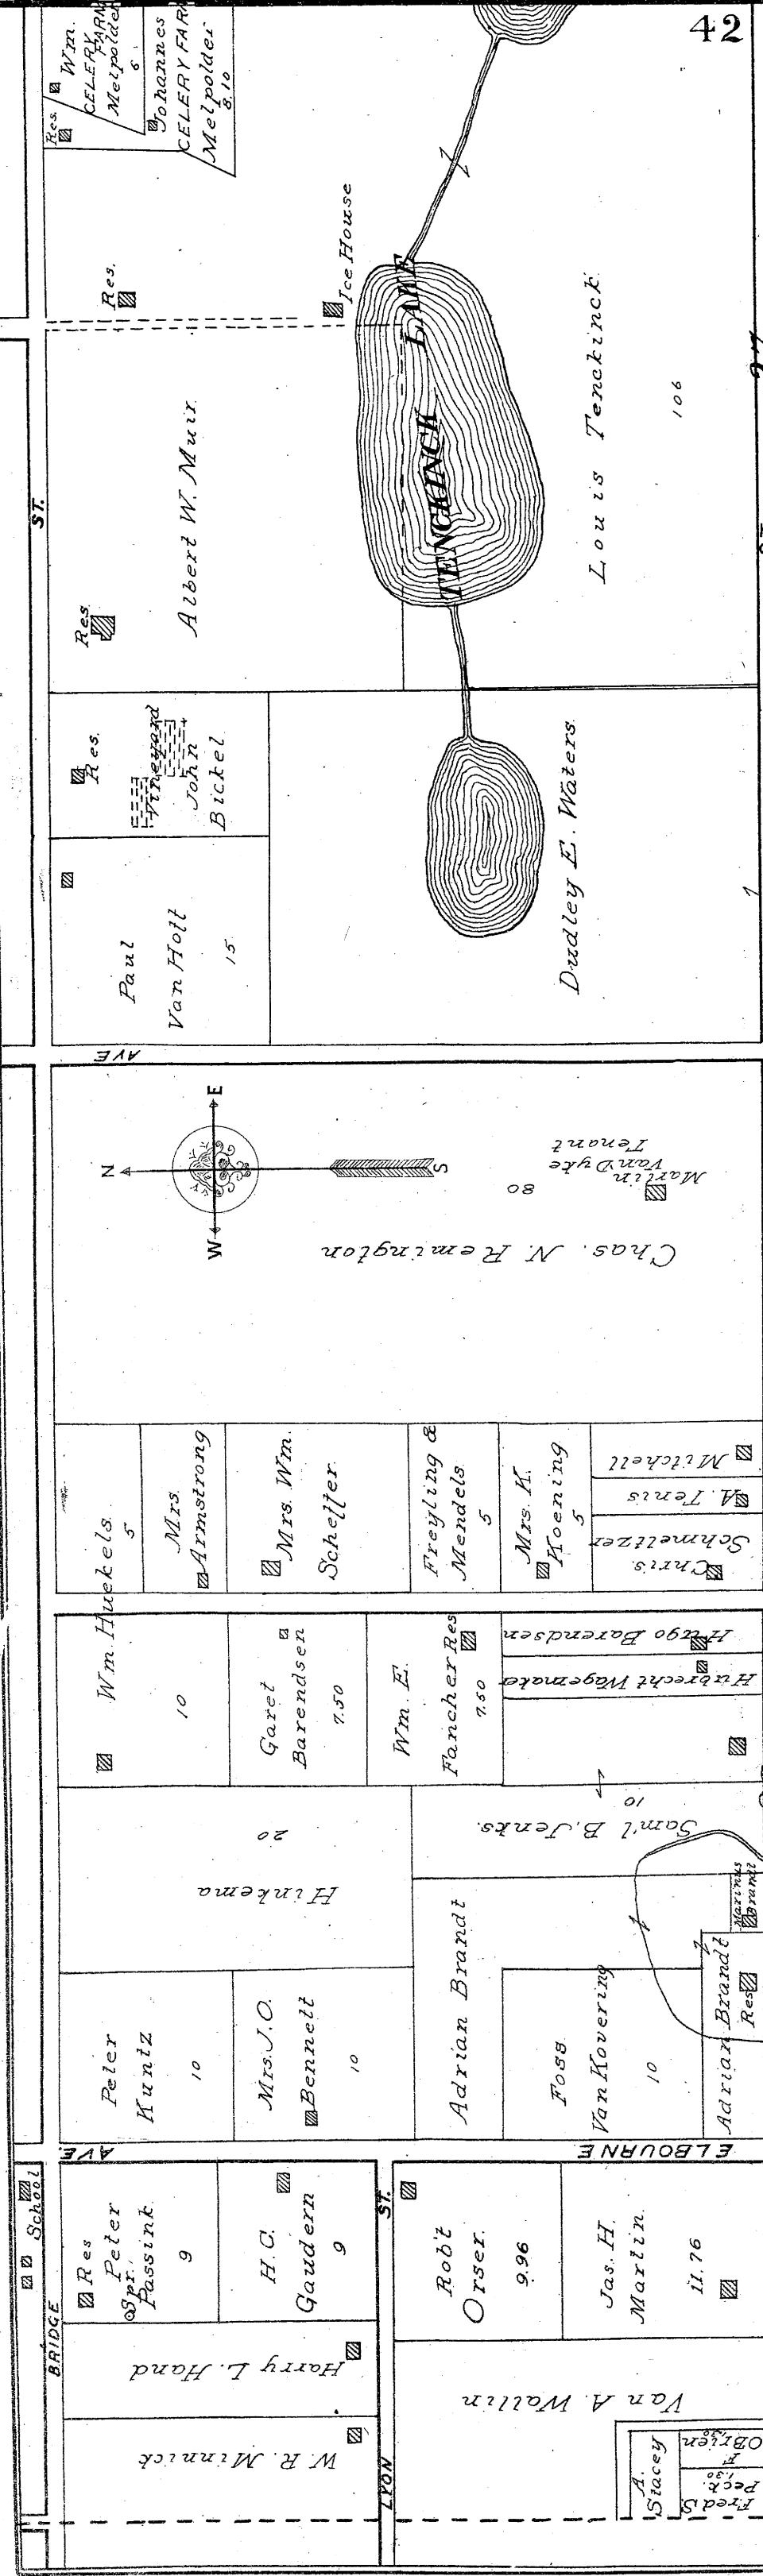 42
Res.
Wm.
CELERY FARM
Melpolder
6
Johannes
CELERY FARM
Melpolder
8.10
Res.
Ice House
TENCKINCK LAKE
Louis Tenckinck
106
ST.
Albert W. Muir
Res
Res.
Vineyard
John
Bickel
Paul
Van Holt
15
Dudley E. Waters
AVE
N
E
W
S
Chas. N. Remington
80
Martin
Van Dyke
Tenant
Wm. Huekels
5
Mrs
Armstrong
Mrs. Wm.
Scheffer
Freyling &
Mendels
5
Mrs. K.
Koening
5
Mitchell
A. Tenis
Chris.
Schmeltzer
10
Garet
Barendsen
7.50
Wm. E.
Fancher Res
7.50
Hugo Barendsen
Hubrecht Wagemaker
Hinkema
20
Sam'l B. Jenks
10
Marinus
Brandt
Peter
Kuntz
10
Mrs. J. O.
Bennett
10
Adrian Brandt
Foss
Van Kovering
10
Adrian Brandt
Res
AVE.
ELBOURNE
School
BRIDGE
Res
Peter
Spr.
Passink
9
H. C.
Gaudern
9
ST.
Rob't
Orser
9.96
Jas. H.
Martin
11.76
Harry L. Hand
W. R. Minnick
LYON
Van A. Wallin
A.
Stacey
F
OBrien
1.30
Fred S.
Peck
1.30